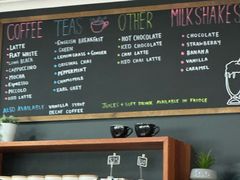 COFFEE
LATTE
FLAT WHITE
LONG BLACK
CAPPUCCINO
MOCHA
ESPRESSO
PICCOLO
ICED LATTE
TEAS
ENGLISH BREAKFAST
GREEN
LEMONGRASS & GINGER
ORIGINAL CHAI
PEPPERMINT
CHAMOMILE
EARL GREY
OTHER
HOT CHOCOLATE
ICED CHOCOLATE
CHAI LATTE
ICED CHAI LATTE
MILKSHAKES
CHOCOLATE
STRAWBERRY
BANANA
VANILLA
CARAMEL
ALSO AVAILABLE
VANILLA SYRUP
DECAF COFFEE
JUICES + SOFT DRINK AVAILABLE IN FRIDGE